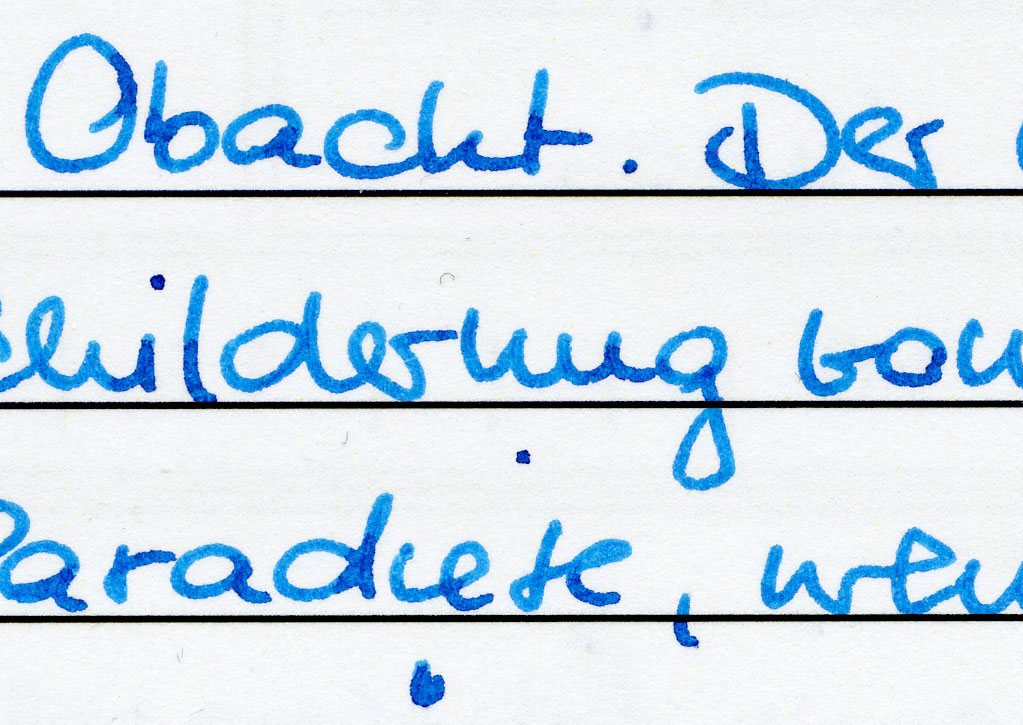 Obacht. Der
childerung von
Paradiese, wen